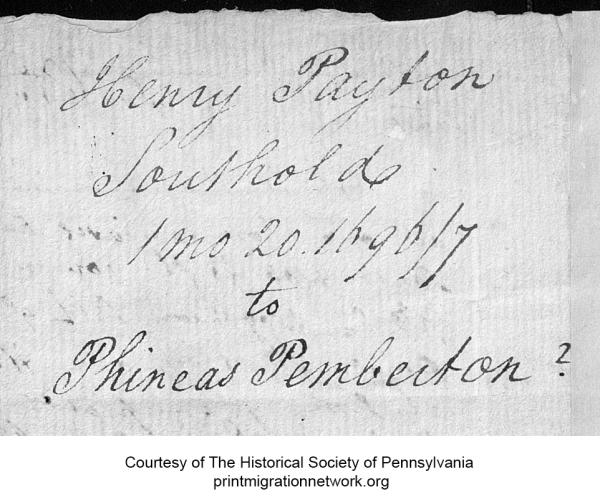 Henry Payton
Southold
1 mo 20. 1696/7
to
Phineas Pemberton ?
Courtesy of The Historical Society of Pennsylvania
printmigrationnetwork.org